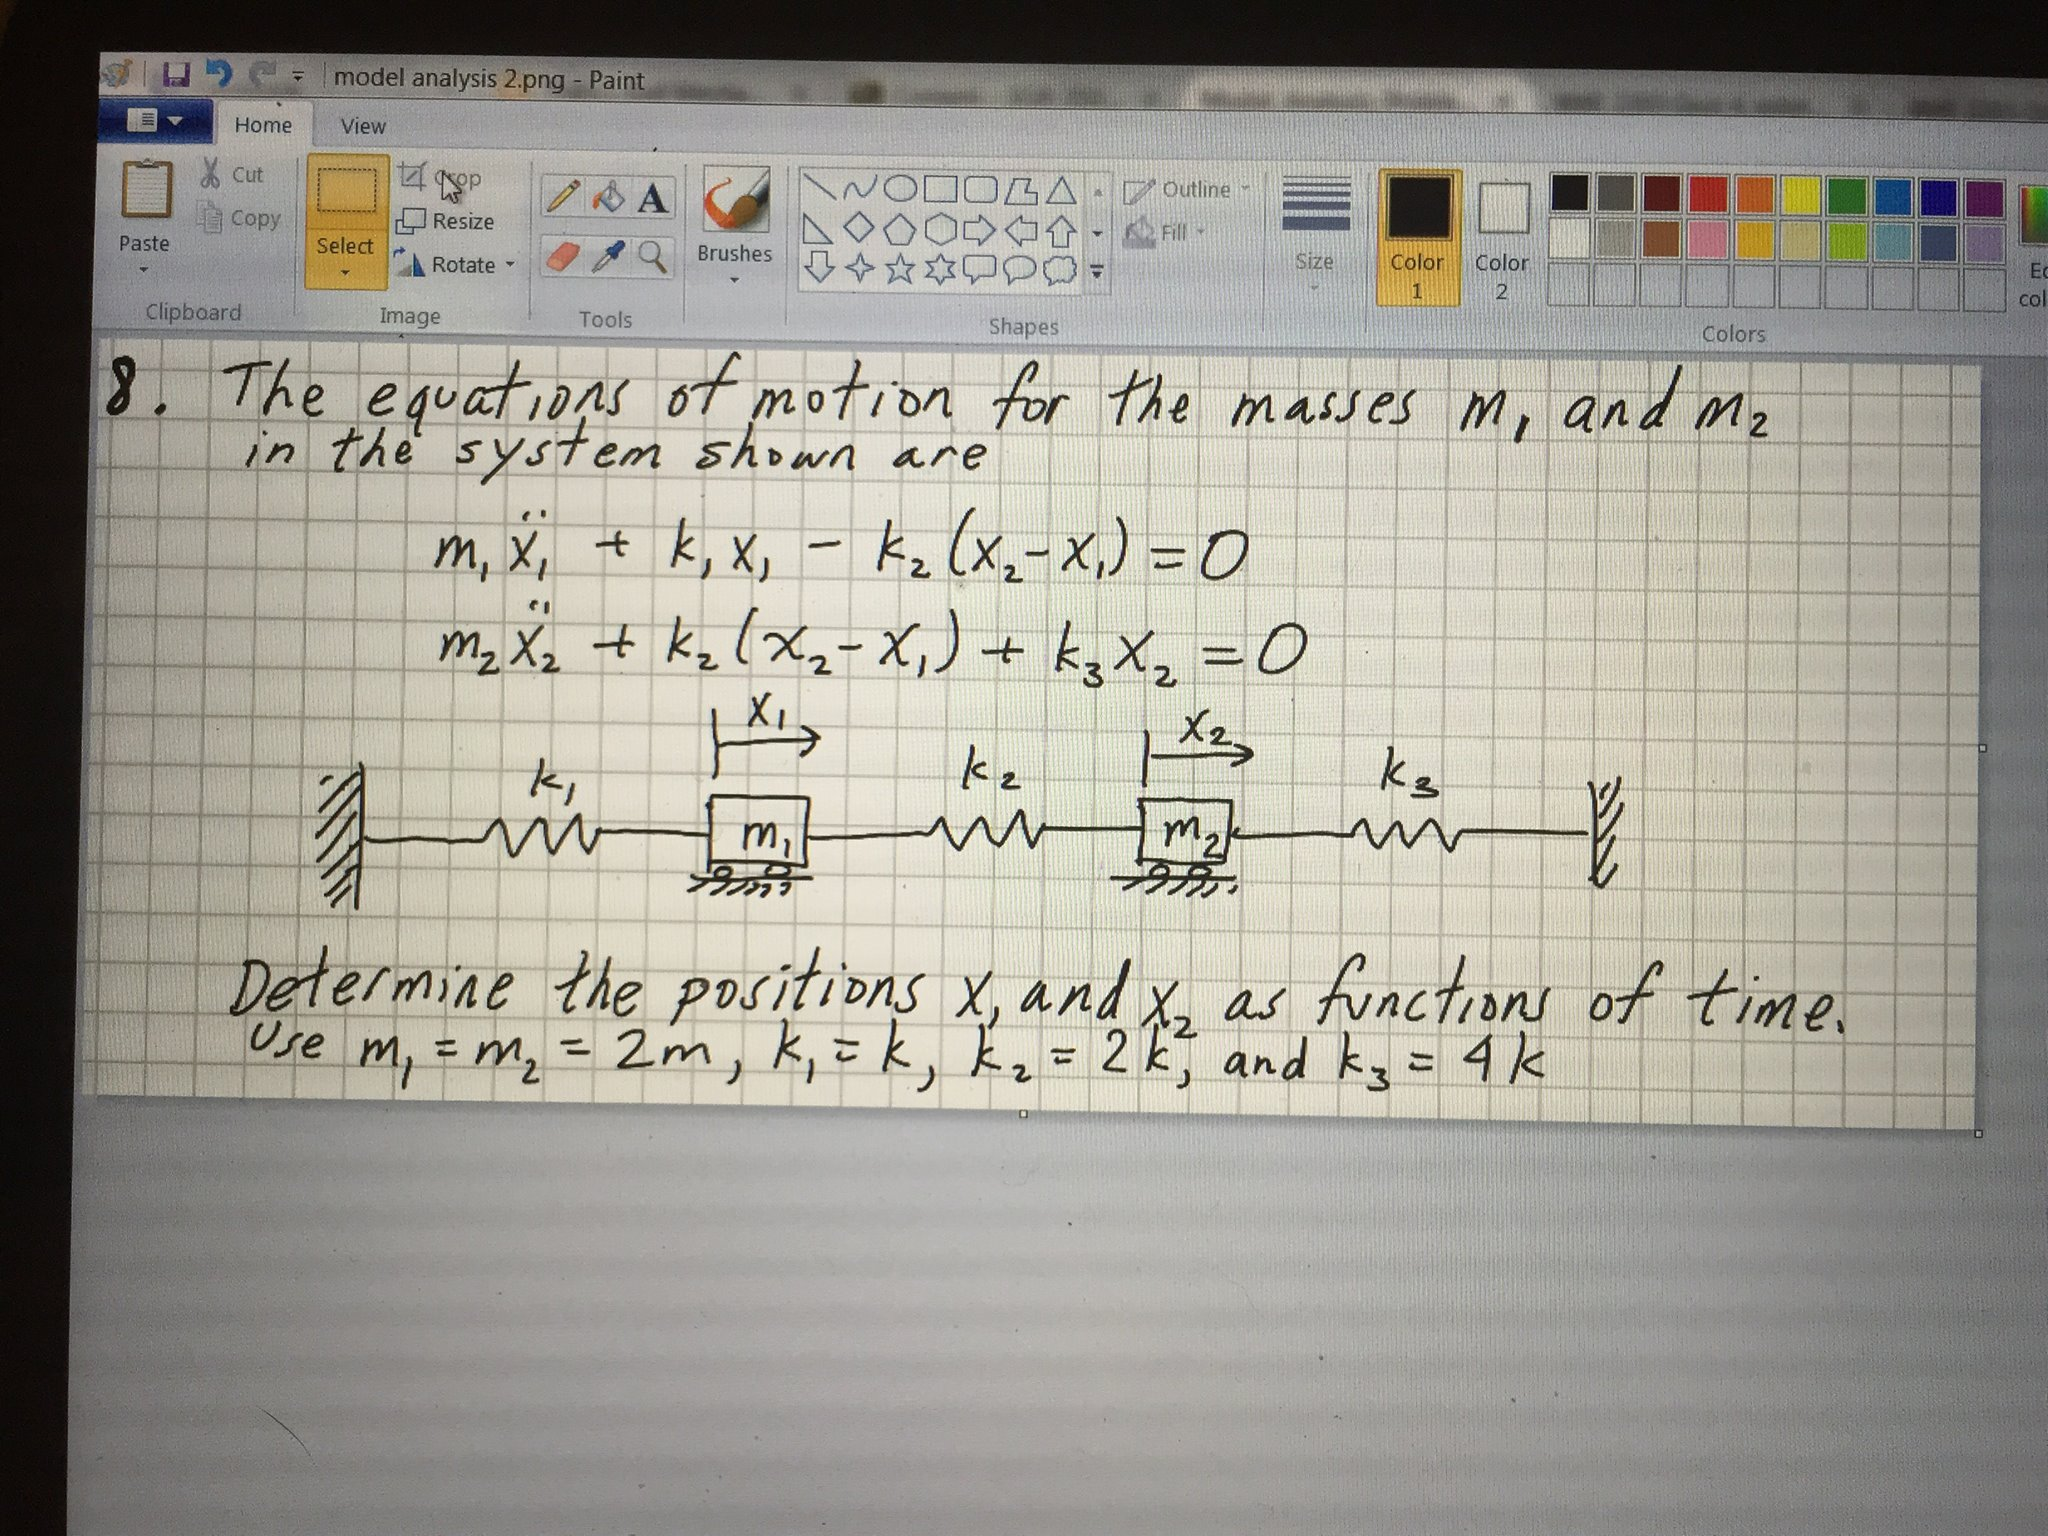 model analysis 2.png - Paint
Home View
Cut
Copy
Paste
Clipboard
Crop
Resize
Rotate
Select
Image
A
Tools
Brushes
Outline
Fill
Shapes
Size
Color 1
Color 2
Colors
8. The equations of motion for the masses m₁ and m₂
in the system shown are
m₁ẍ₁ + k₁x₁ - k₂(x₂-x₁) = 0
m₂ẍ₂ + k₂(x₂-x₁) + k₃x₂ = 0
x₁ x₂
k₁ k₂ k₃
m₁ m₂
Determine the positions x₁ and x₂ as functions of time.
Use m₁ = m₂ = 2m, k₁ = k, k₂ = 2k, and k₃ = 4k